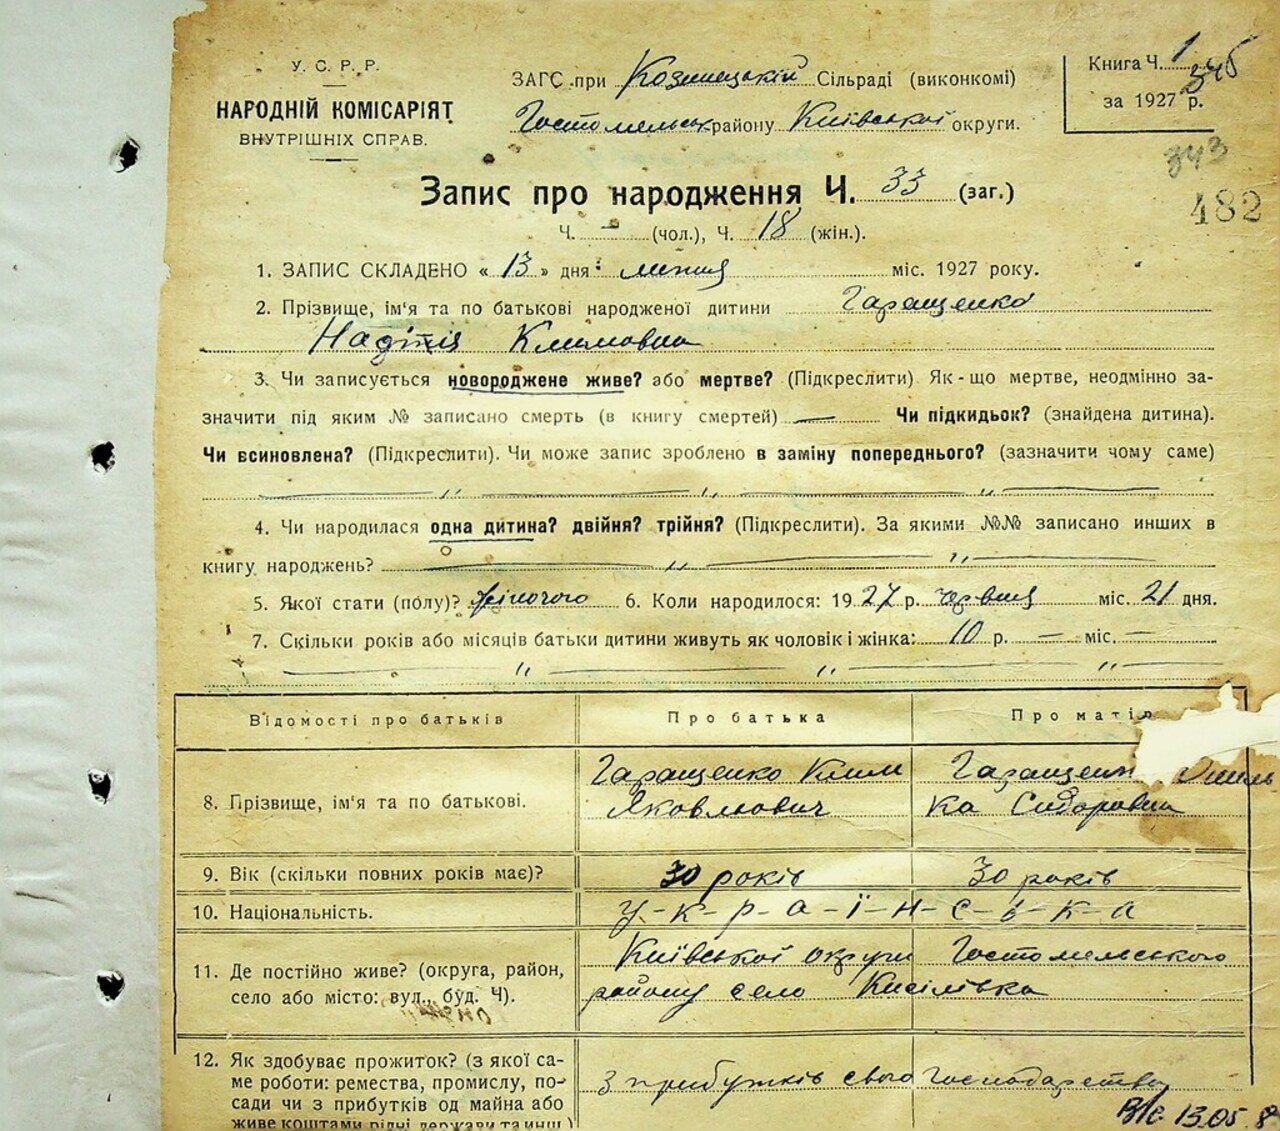 У. С. Р. Р.
НАРОДНІЙ КОМІСАРІЯТ
ВНУТРІШНІХ СПРАВ.
ЗАГС при Козинецькій Сільраді (виконкомі)
Гостомельськ району Київської округи.
Книга Ч. 1
за 1927 р.
345
343
482
Запис про народження Ч. 33 (заг.)
Ч. – (чол.), Ч. 18 (жін.).
1. ЗАПИС СКЛАДЕНО « 13 » дня липня міс. 1927 року.
2. Прізвище, ім'я та по батькові народженої дитини Гаращенко
Надія Климовна
3. Чи записується новороджене живе? або мертве? (Підкреслити) Як-що мертве, неодмінно за-
значити під яким № записано смерть (в книгу смертей) — Чи підкидьок? (знайдена дитина).
Чи всиновлена? (Підкреслити). Чи може запис зроблено в заміну попереднього? (зазначити чому саме)
— „ — „ — „ —
4. Чи народилася одна дитина? двійня? трійня? (Підкреслити). За якими №№ записано инших в
книгу народжень? — „ — „ —
5. Якої стати (полу)? жіночого 6. Коли народилося: 1927 р. червня міс. 21 дня.
7. Скільки років або місяців батьки дитини живуть як чоловік і жінка: 10 р. — міс. —
— „ — „ — „ —
Відомості про батьків Про батька Про матір
8. Прізвище, ім'я та по батькові. Гаращенко Клим Гаращен
Яковлювич ка Сидоровна
9. Вік (скільки повних років має)? 30 років 30 років
10. Національність. У-к-р-а-ї-н-с-ь-к-а
11. Де постійно живе? (округа, район, Київської округи Гостомельського
село або місто: вул., буд. Ч). району село Кисілівка
12. Як здобуває прожиток? (з якої са-
ме роботи: ремества, промислу, по- З прибутків свого господарства
сади чи з прибутків од майна або
живе коштами рідні держави та инш.)
13.05.8